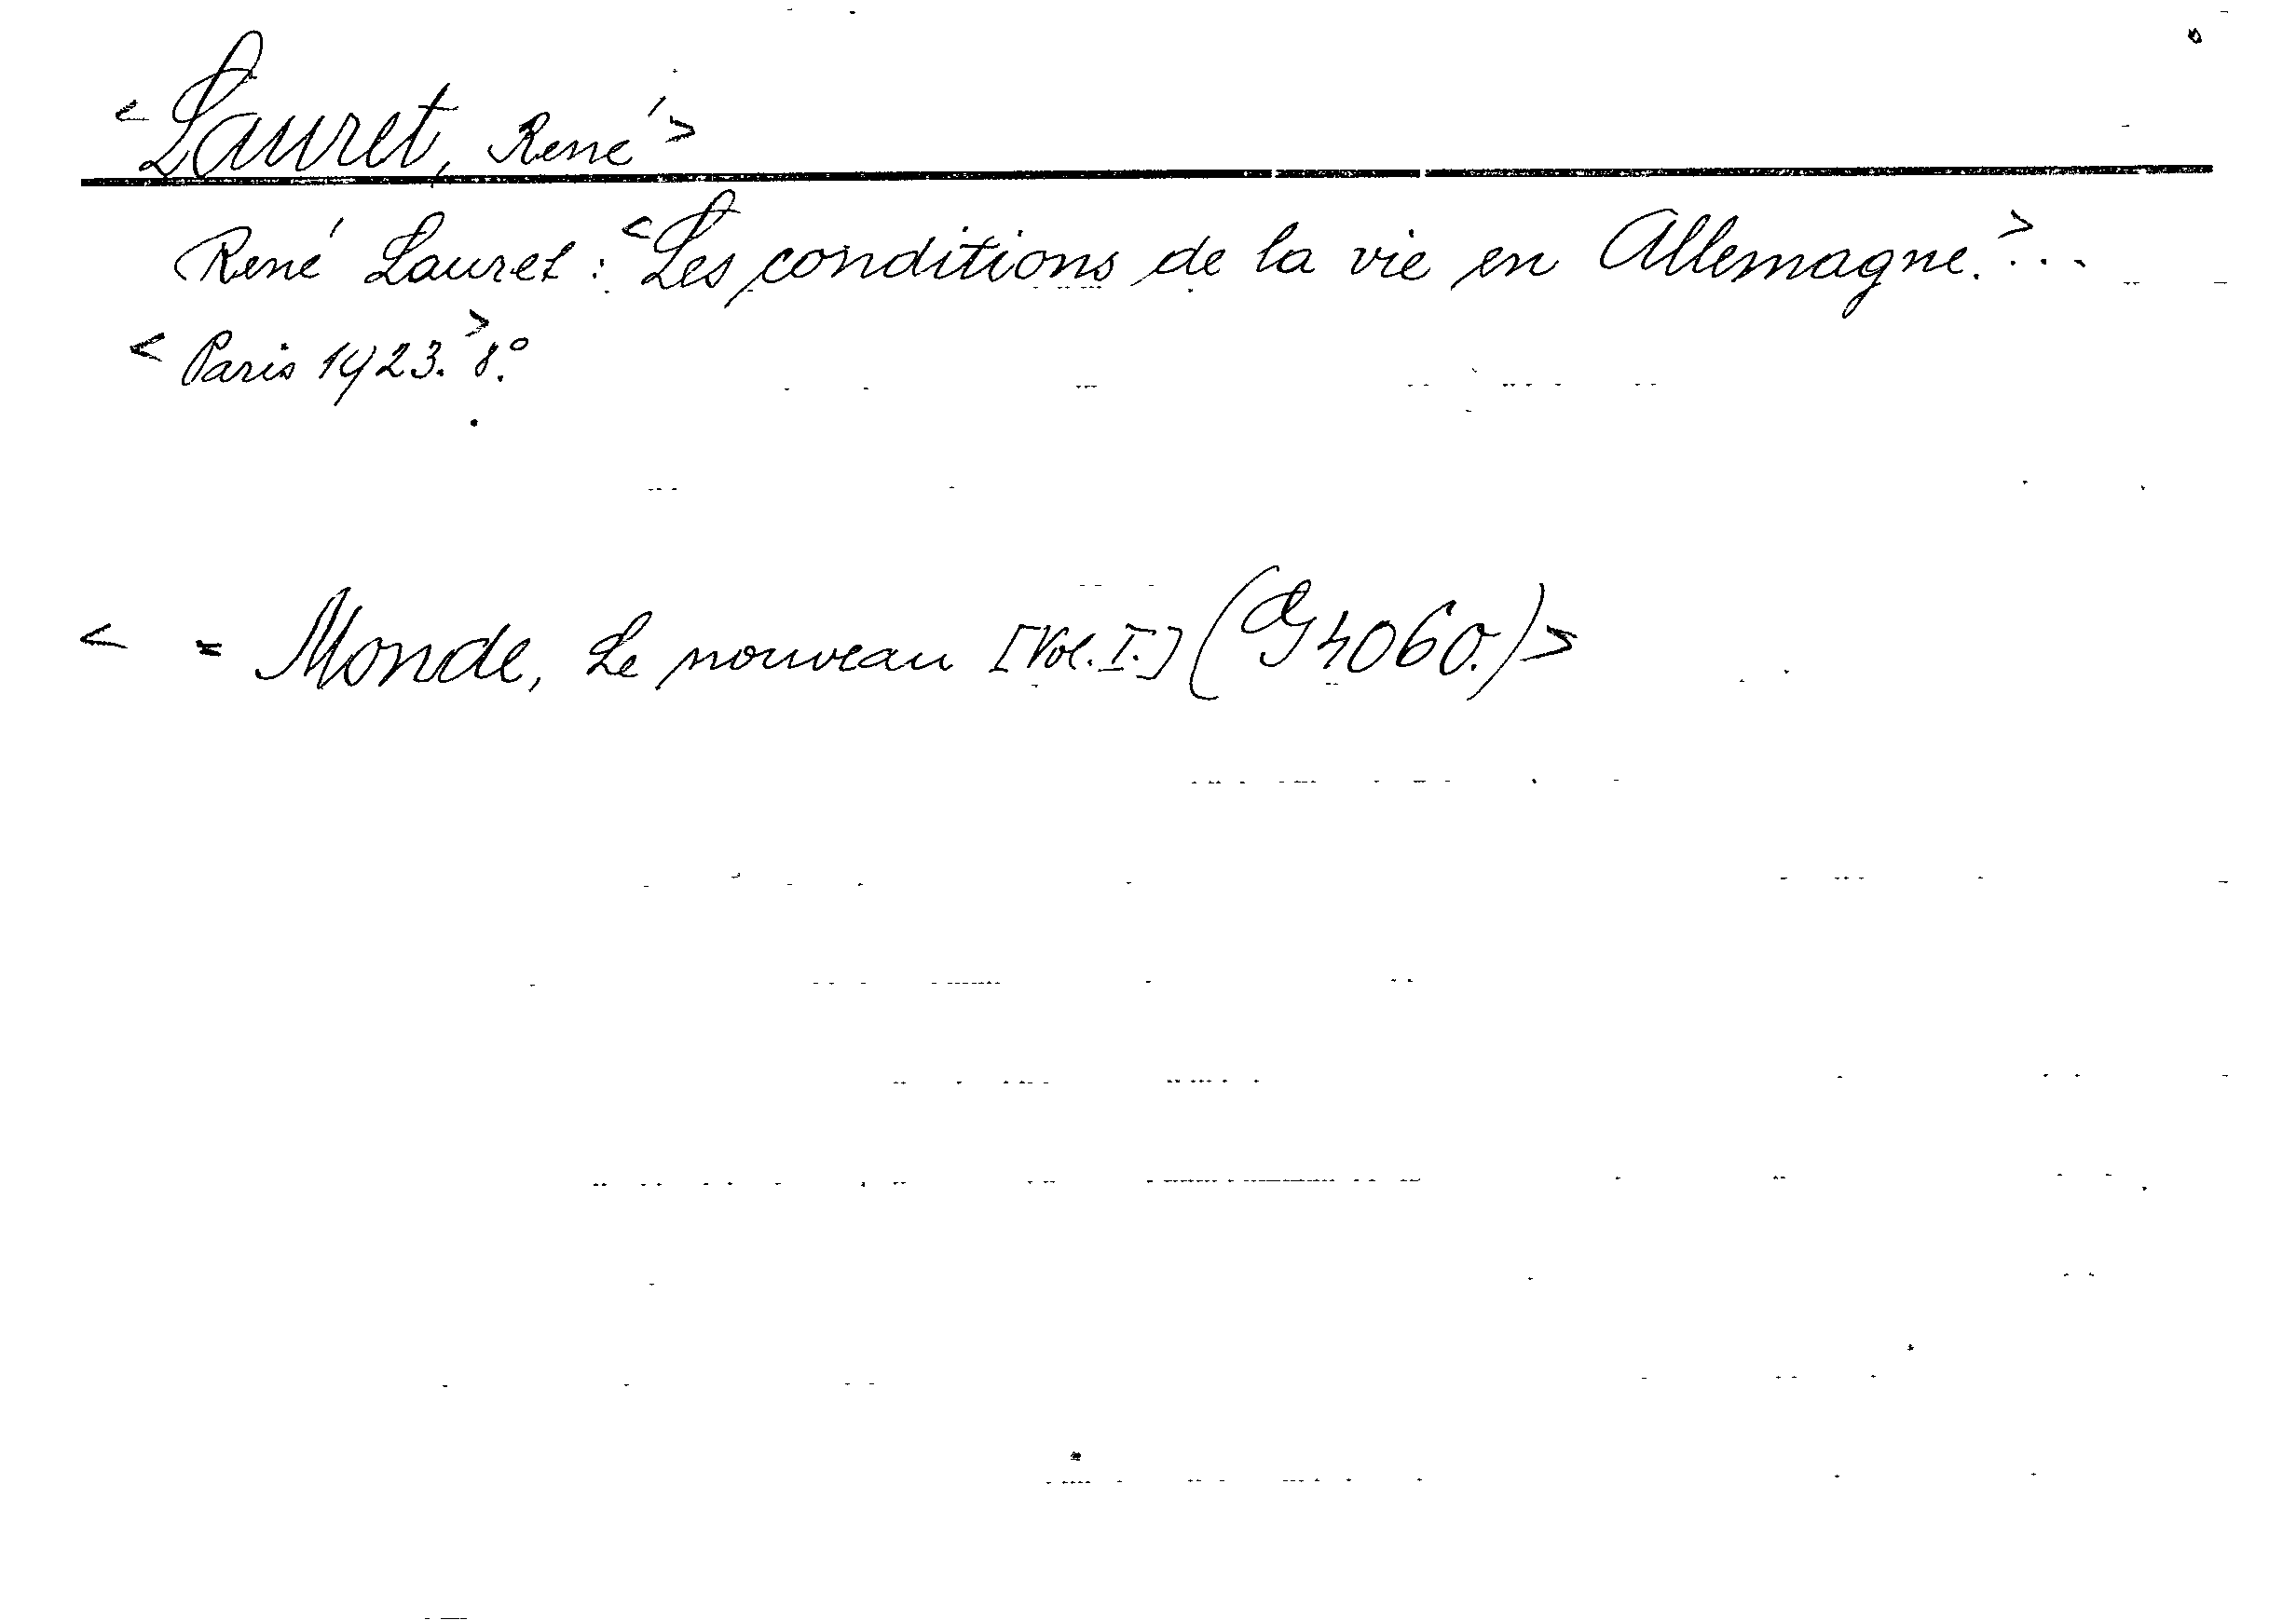 <Lauret, René>
René Lauret: <Les conditions de la vie en Allemagne.>...
<Paris 1923.> 8.°
< = Monde, Le nouveau [Vol. I.] (G 4060.)>